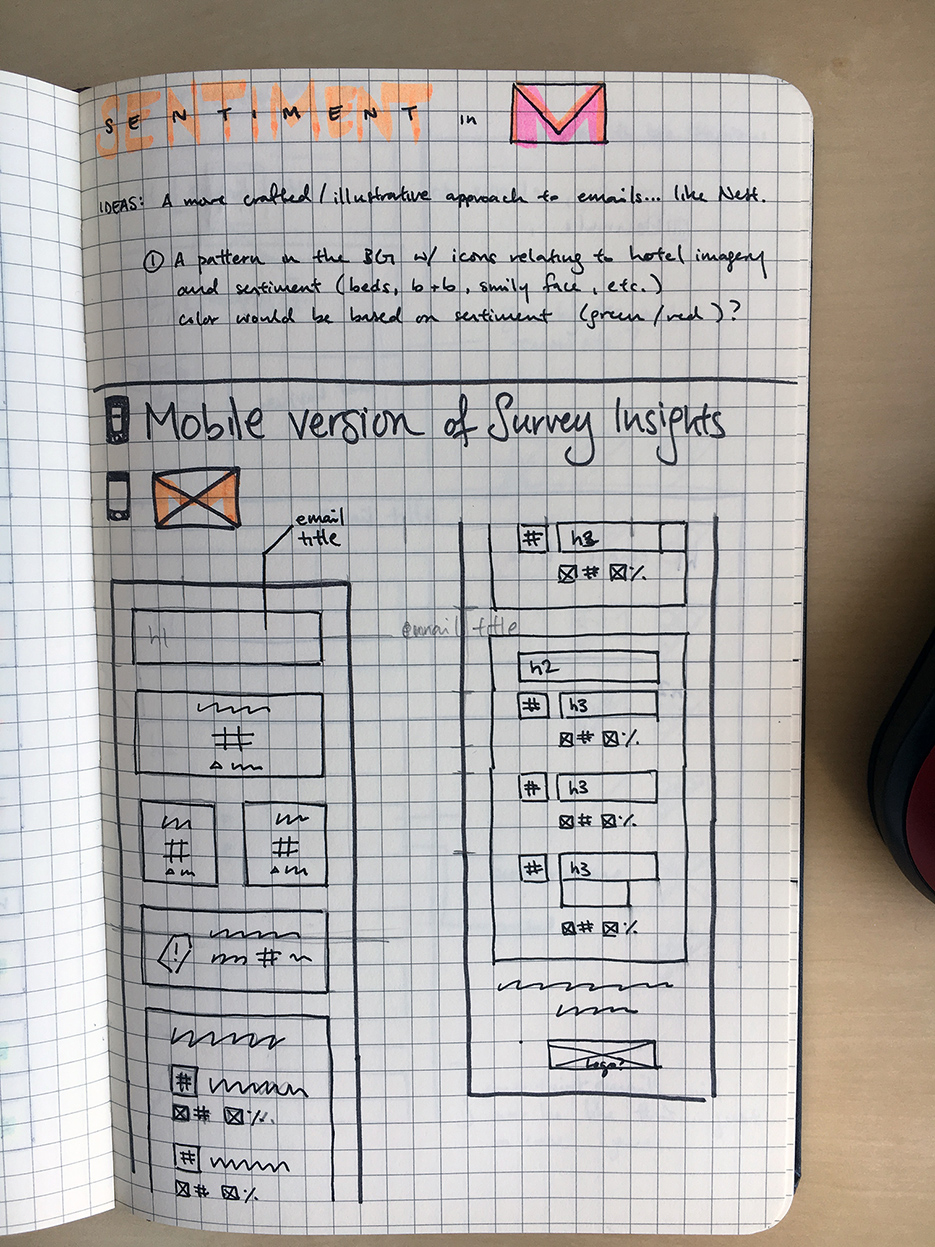 SENTIMENT in M
IDEAS: A more crafted / illustrative approach to emails... like Nest.
① A pattern in the BG w/ icons relating to hotel imagery
and sentiment (beds, b+b, smily face, etc.)
color would be based on sentiment (green/red)?
Mobile version of Survey Insights
email
title
h1
email title
#
#
#
!
#
#
# %
#
# %
# h3
# %
h2
# h3
# %
# h3
# %
# h3
# %
Logo?